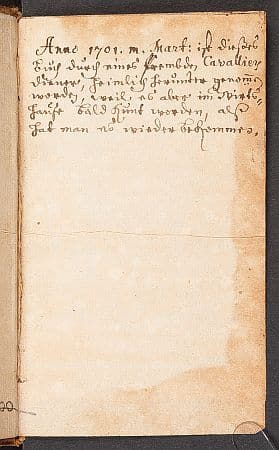 Anno 1701. m. Mart: ist dießes
buch durch eines frembden Cavallier
diener, heimlich herunter genom̄
worden, weil es aber im Wirts-
hauße bald kunt worden, alß
hat man es wieder bekommen.